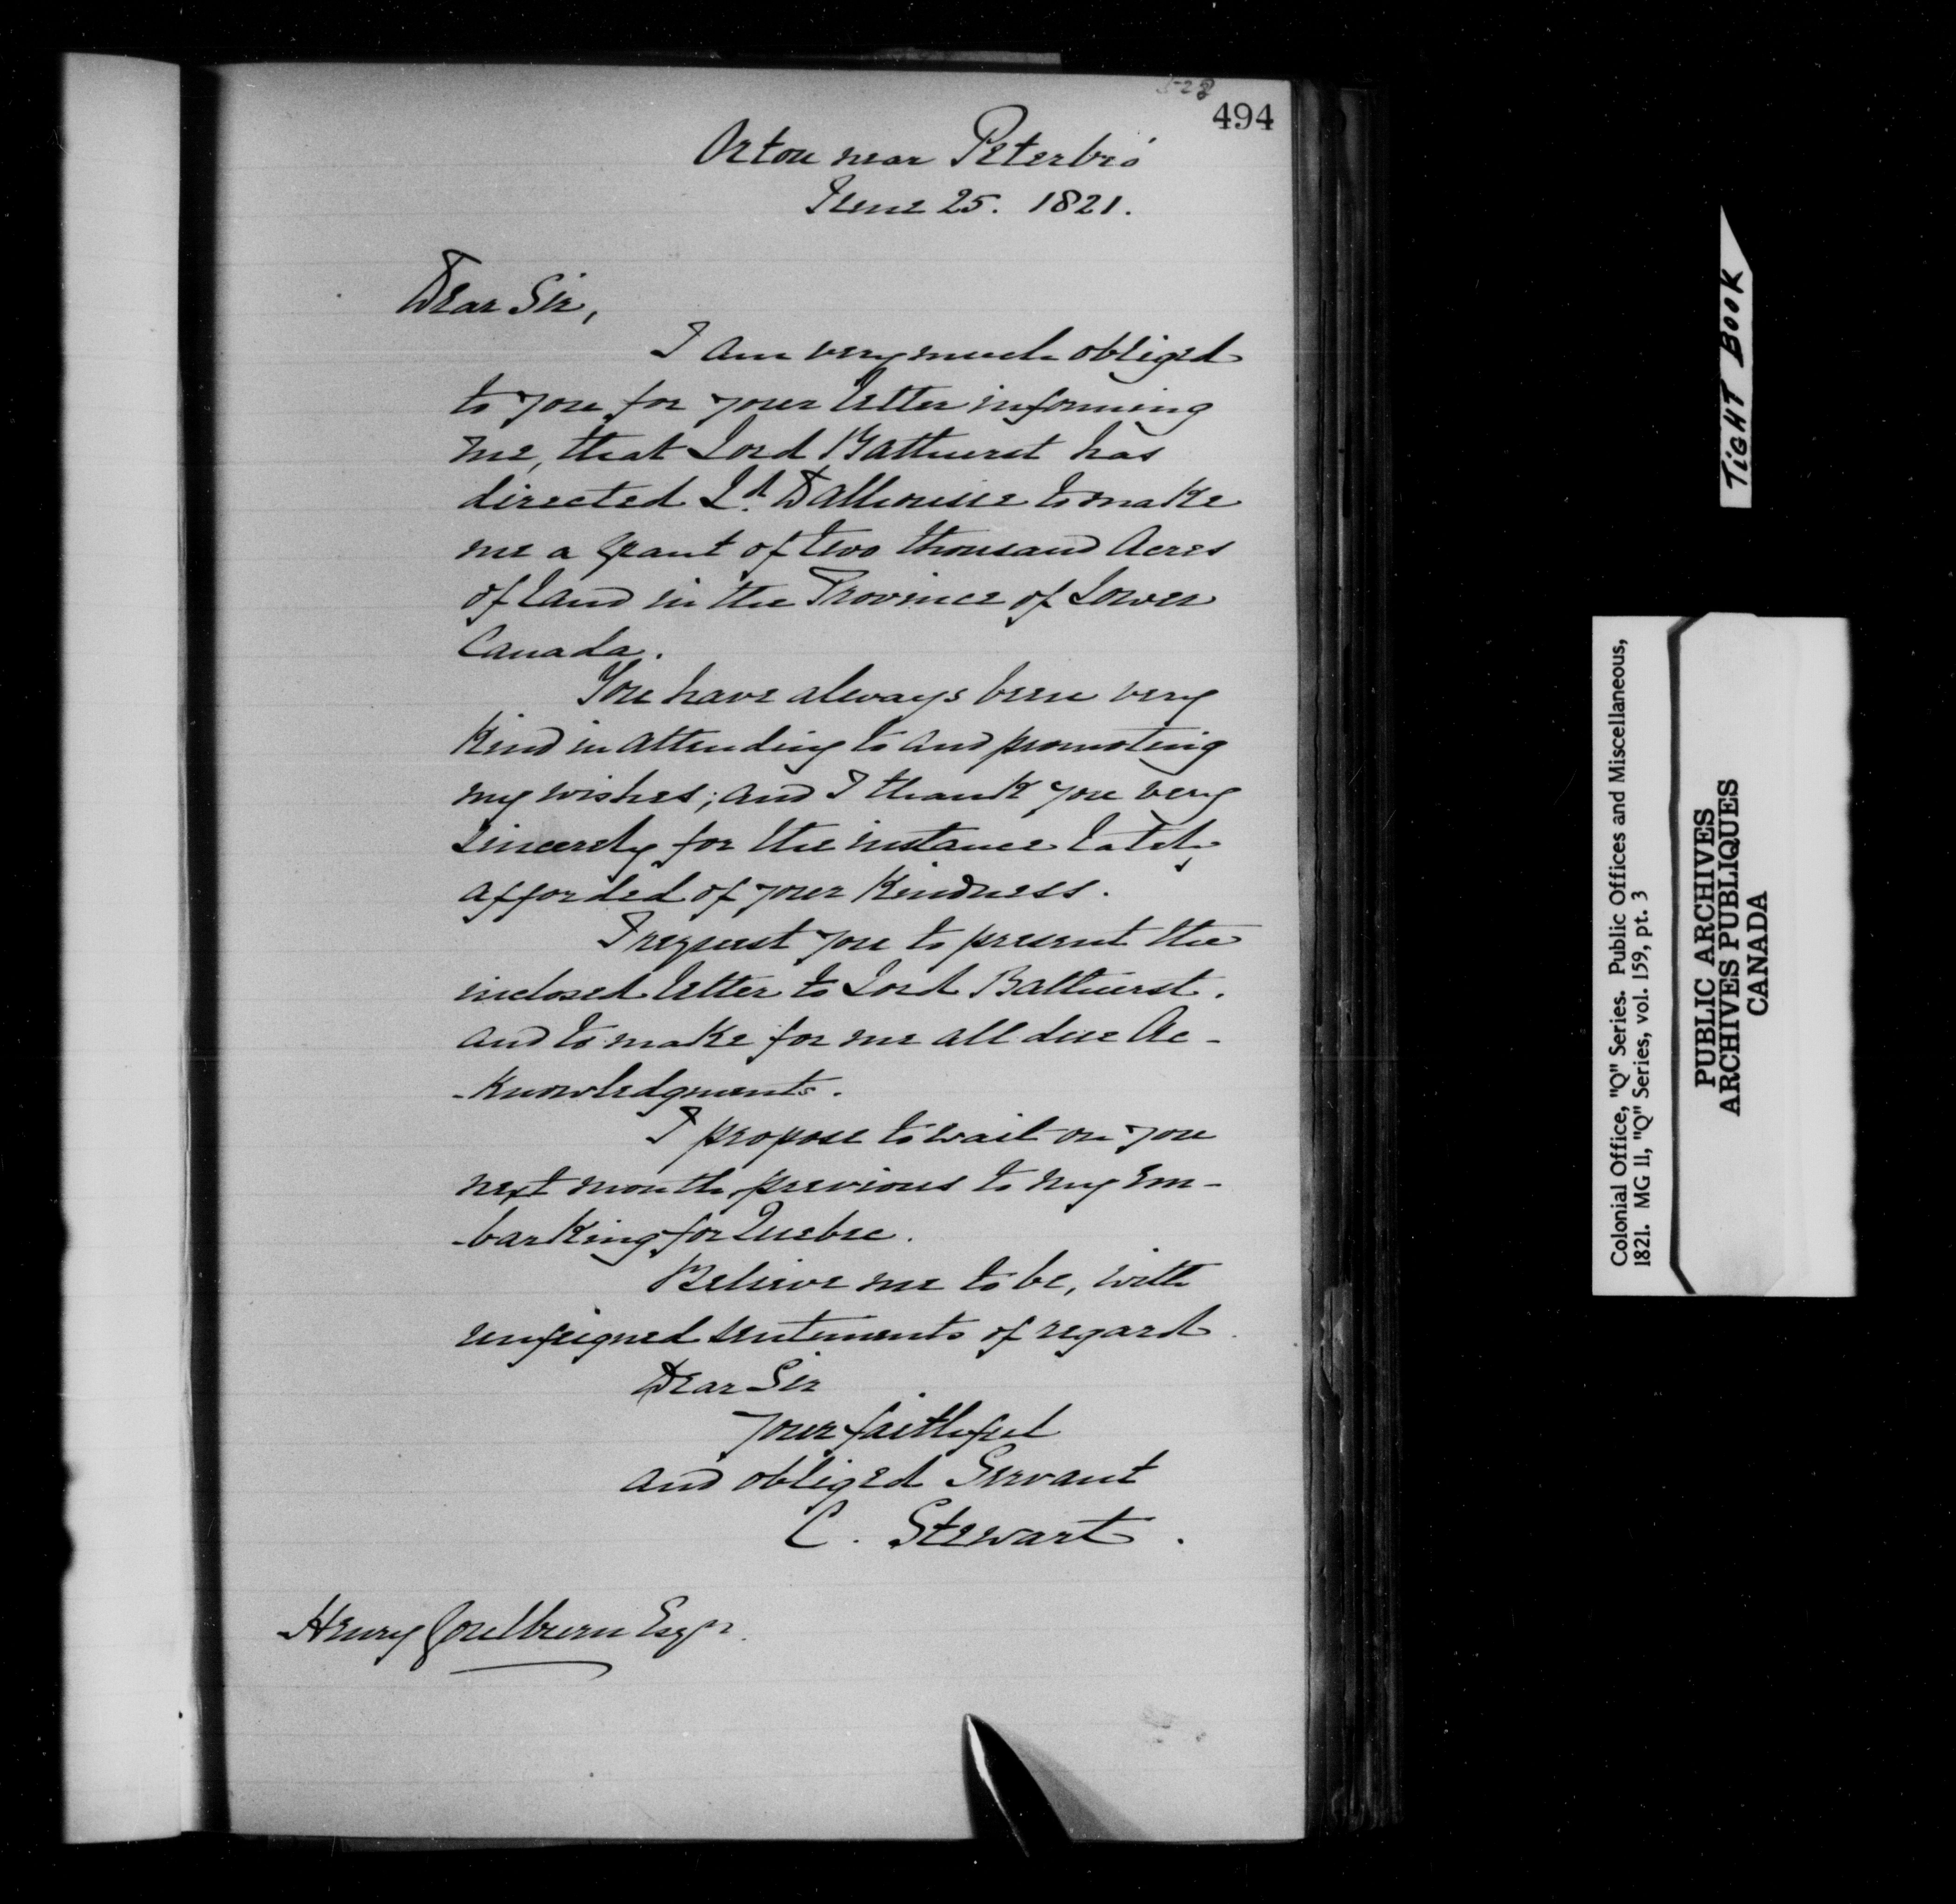 494
Orton near Peterbro'
June 25. 1821.
Dear Sir,
I am very much obliged
to you for your letter informing
me, that Lord Bathurst has
directed Ld. Dalhousie to make
me a Grant of two thousand Acres
of land in the Province of Lower
Canada.
You have always been very
kind in attending to and promoting
my wishes; and I thank you very
sincerely for the instance lately
afforded of your kindness.
I request you to present the
inclosed letter to Lord Bathurst.
and to make for me all due Ac-
-knowledgments.
I propose to wait on you
next month, previous to my Em-
-barking for Quebec.
Believe me to be, with
unfeigned sentiments of regard
Dear Sir
your faithful
and obliged Servant
C. Stewart.
Henry Goulburn Esqr.
TIGHT BOOK
Colonial Office, "Q" Series. Public Offices and Miscellaneous,
1821. MG 11, "Q" Series, vol. 159, pt. 3
PUBLIC ARCHIVES
ARCHIVES PUBLIQUES
CANADA